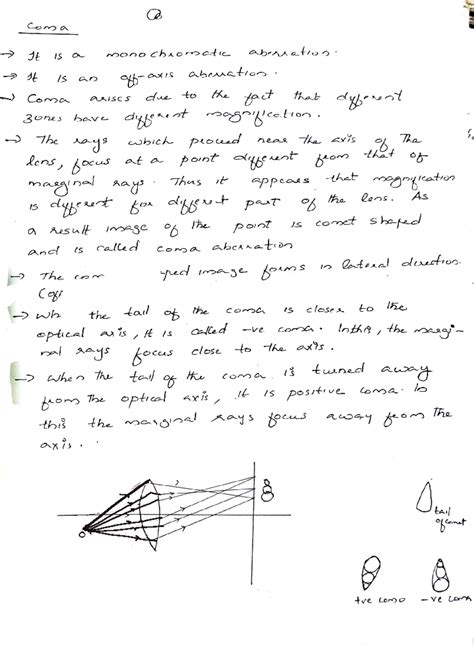 Coma
→ It is a monochromatic aberration.
→ It is an off-axis aberration.
→ Coma arises due to the fact that different
zones have different magnification.
→ The rays which proceed near the axis of the
lens, focus at a point different from that of
marginal rays. Thus it appears that magnification
is different for different part of the lens. As
a result image of the point is comet shaped
and is called coma aberration
→ The com ped image forms in lateral direction.
→ Wh the tail of the coma is closer to the
optical axis, it is called -ve coma. In this, the margi-
nal rays focus close to the axis.
→ When the tail of the coma is turned away
from the optical axis, it is positive coma. In
this the marginal rays focus away from the
axis.
O
tail
of comet
+ve coma -ve coma